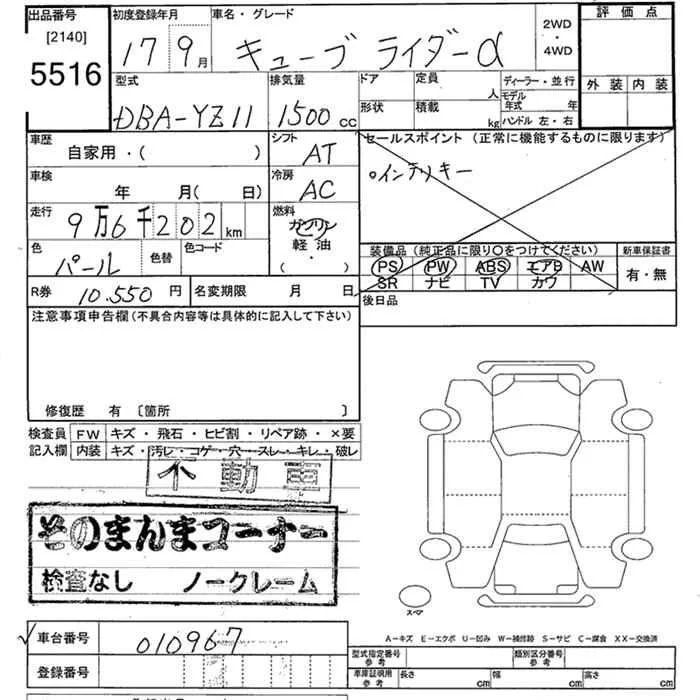 出品番号
[2140]
5516
初度登録年月
17 9月
車名・グレード
キューブ ライダーα
2WD
・
4WD
評価点
外装 内装
型式
DBA-YZ11
排気量
1500cc
ドア
定員
人
形状
積載
kg
ディーラー・並行
モデル
年式 年
ハンドル 左・右
車歴
自家用・( )
シフト
AT
セールスポイント (正常に機能するものに限ります)
○インテリキー
車検
年 月( 日)
冷房
AC
走行
9万6千202km
燃料
ガソリン
軽油
・
( )
色
パール
色替
色コード
装備品 (純正品に限り○をつけてください)
新車保証書
PS PW ABS エアB AW
有・無
SR ナビ TV カワ
R券 10.550 円
名変期限 月 日
後日品
注意事項申告欄 (不具合内容等は具体的に記入して下さい)
修復歴 有 [箇所 ]
検査員 FW キズ・飛石・ヒビ割・リペア跡・×要
記入欄 内装 キズ・汚レ・コゲ・穴・スレ・キレ・破レ
不動車
そのまんまコーナー
検査なし ノークレーム
スペア
A-キズ E-エクボ U-凹み W-補修跡 S-サビ C-腐食 XX-交換済
車台番号 010967
登録番号
型式指定番号
参考
類別区分番号
参考
車庫証明用
参考
長さ cm
幅 cm
高さ cm